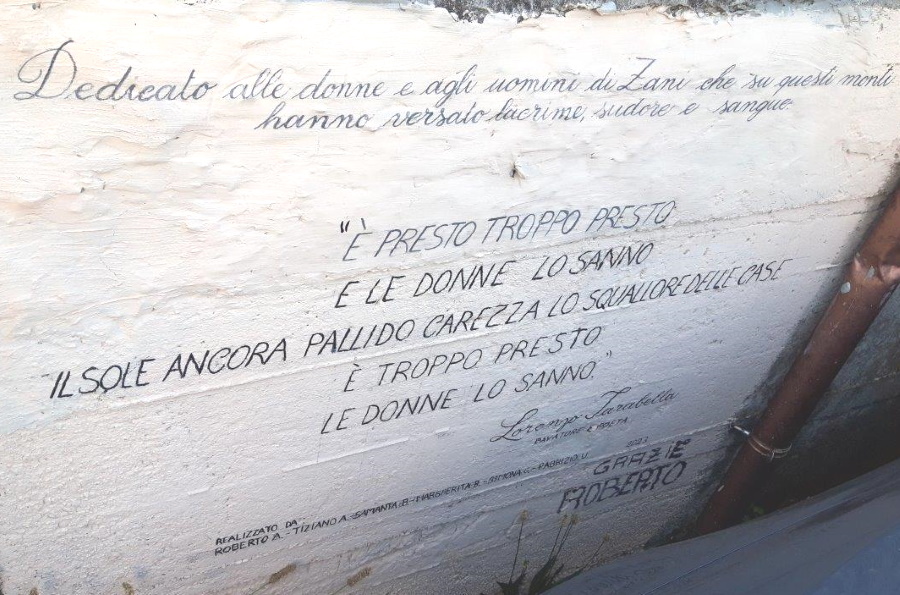 Dedicato alle donne e agli uomini di Zani che su questi monti
hanno versato lacrime, sudore e sangue.
"È PRESTO TROPPO PRESTO
E LE DONNE LO SANNO
IL SOLE ANCORA PALLIDO CAREZZA LO SQUALLORE DELLE CASE
È TROPPO PRESTO
LE DONNE LO SANNO."
Lorenzo Tarabella
CAVATORE E POETA
REALIZZATO DA
ROBERTO A. - TIZIANO A. - SAMANTA B. - MARGHERITA R. - SIMONA C. - FABRIZIO V.
GRAZIE
ROBERTO